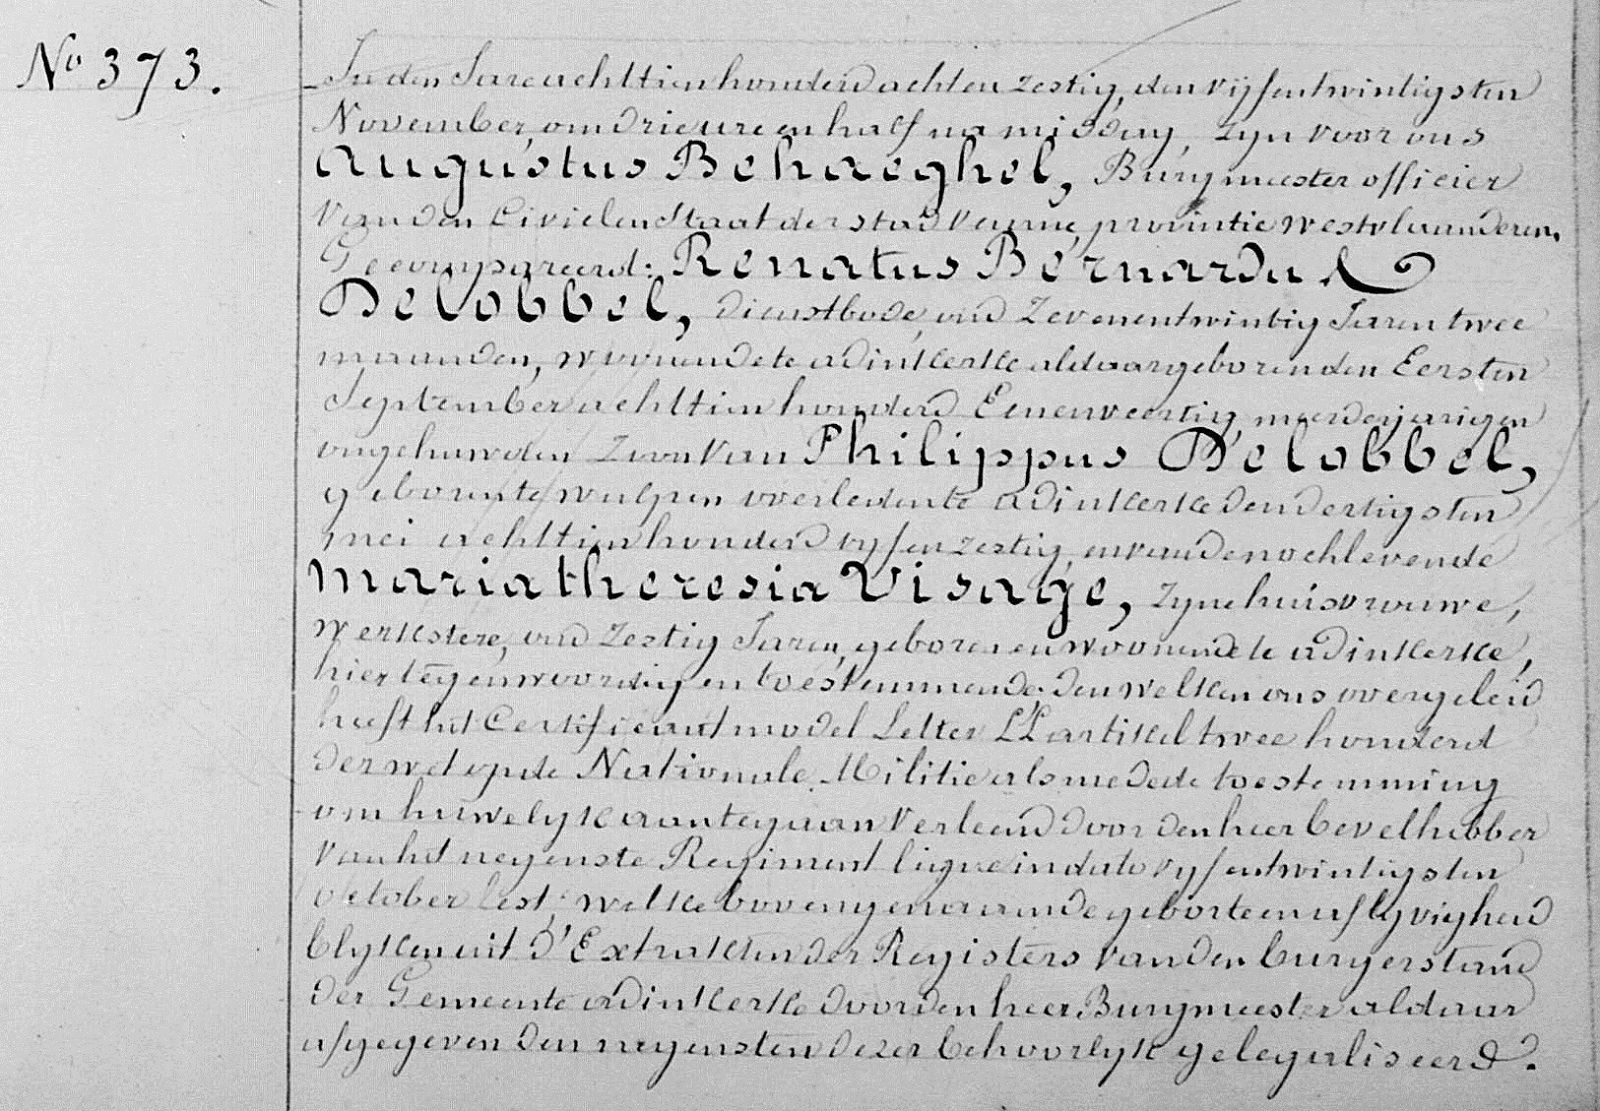 No 373.
In den Jare achttien honderd acht en zestig, den vyf en twintigsten
November, om drie ure en half na middag, zyn voor ons
Augustus Behaeghel, Burgmeester officier
van den Civielen Staat der stad Veurne, provintie westvlaanderen.
Gecompareerd: Renatus Bernardus
Delobbel, dienstbode, oud Zevenentwintig Jaren twee
maanden, woonende te adinkerke aldaar geboren den Eersten
September achttien honderd Eenenveertig, meerderjarigen
ongehuwden Zoon van Philippus Delobbel,
geboren te wulpen overleden te adinkerke den dertigsten
mei achttien honderd vyf en zestig, en van de noch levende
maria theresia Visage, zyne huisvrouwe,
werkstere, oud Zestig Jaren, geboren en woonende te adinkerke,
hier tegenwoordig en toestemmende. den welken ons overgeleid
heeft het Certificaat model Letter LL artikel twee honderd
der wet op de Nationale Militie als mede de toestemming
om huwelyk aan te gaan verleend door den heer bevelhebber
van het negenste Regiment ligne in dato vyf en twintigsten
october lest; welke bovengenaamde geborte en aflyvigheid
blyken uit d'Extrakten der Registers van den burgerstand
der Gemeente adinkerke door den heer Burgmeester aldaar
afgegeven den negensten dezer behoorlyk gelegaliseerd.